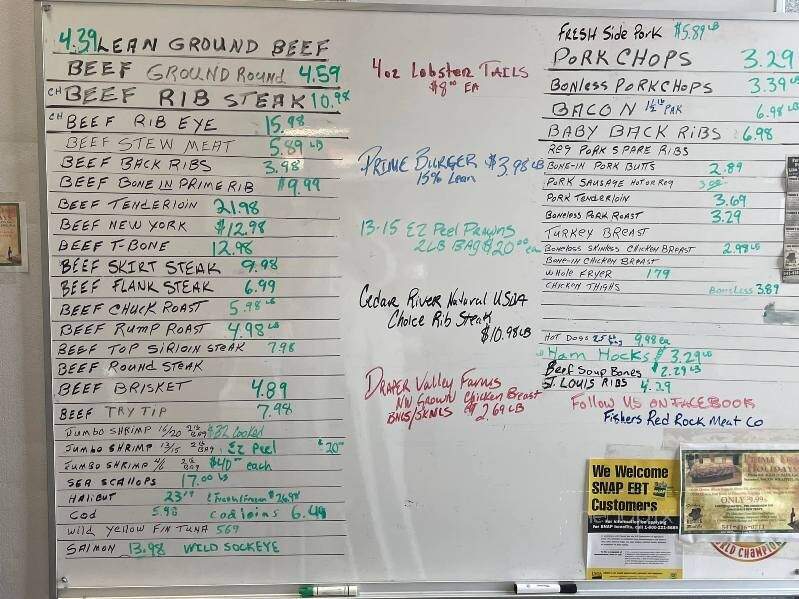 4.39 LEAN GROUND BEEF
BEEF GROUND Round 4.59
CH BEEF RIB STEAK 10.98
CH BEEF RIB EYE 15.98
BEEF STEW MEAT 5.89 LB
BEEF BACK RIBS 3.98
BEEF BONE IN PRIME RIB $9.99
BEEF TENDERLOIN 21.98
BEEF NEW YORK $12.98
BEEF T-BONE 12.98
BEEF SKIRT STEAK 9.98
BEEF FLANK STEAK 6.99
BEEF CHUCK ROAST 5.98 LB
BEEF RUMP ROAST 4.98 LB
BEEF TOP SIRLOIN STEAK 7.98
BEEF ROUND STEAK
BEEF BRISKET 4.89
BEEF TRY TIP 7.98
JUMBO SHRIMP 16/20 2 LB BAG $32 Cooked
JUMBO SHRIMP 13/15 2 LB BAG EZ Peel $20
JUMBO SHRIMP 4/6 2 LB BAG $40 each
SEA SCALLOPS 17.00 LB
HALIBUT 23
COD 5.98 Cod loins 6.49
Wild Yellow Fin TUNA 569
SALMON 13.98 WILD SOCKEYE
4oz Lobster TAILS
$8.00 EA
PRIME BURGER $3.98 LB
15% Lean
13-15 EZ Peel Prawns
2LB BAG $20.00 ea
Cedar River Natural USDA
Choice Rib Steak
$10.98 LB
DRAPER Valley Farms
NW Grown Chicken Breast
BNLS/SKNLS $2.69 LB
FRESH Side Pork $5.89 LB
PORK CHOPS 3.29
BONLESS PORKCHOPS 3.39 LB
BACON 1½ lb PAK 6.98 LB
BABY BACK RIBS 6.98
REG PORK SPARE RIBS
BONE-IN PORK BUTTS 2.89
PORK SAUSAGE HOT or REG
PORK TENDERLOIN 3.69
BONELESS PORK ROAST 3.29
TURKEY BREAST
BONELESS SKINLESS CHICKEN BREAST 2.98 LB
BONE-IN CHICKEN BREAST
WHOLE FRYER 179
CHICKEN THIGHS BONELESS 3.89
HOT DOGS 2.5 LB bag 9.98 ea
HAM HOCKS $3.29 LB
Beef Soup Bones $2.29 LB
ST. LOUIS RIBS 4.29
FOLLOW US ON FACEBOOK
Fishers Red Rock Meat Co
We Welcome
SNAP EBT
Customers
For information on applying
for SNAP benefits, call 1-800-221-5689
ONLY 9.99
541-416-0711